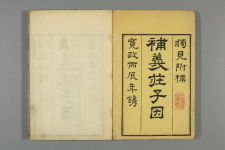 獨見附標
補義莊子因
寛政丙辰年鐫